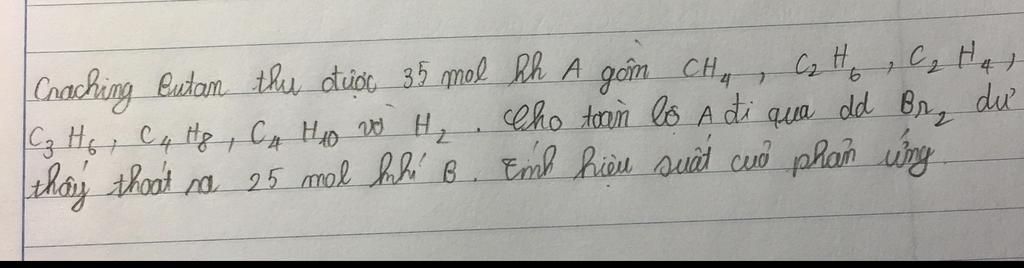 Cracking Butan thu được 35 mol hh A gồm CH4, C2H6, C2H4,
C3H6, C4H8, C4H10 và H2. Cho toàn bộ A đi qua dd Br2 dư
thấy thoát ra 25 mol khí B. Tính hiệu suất của phản ứng.